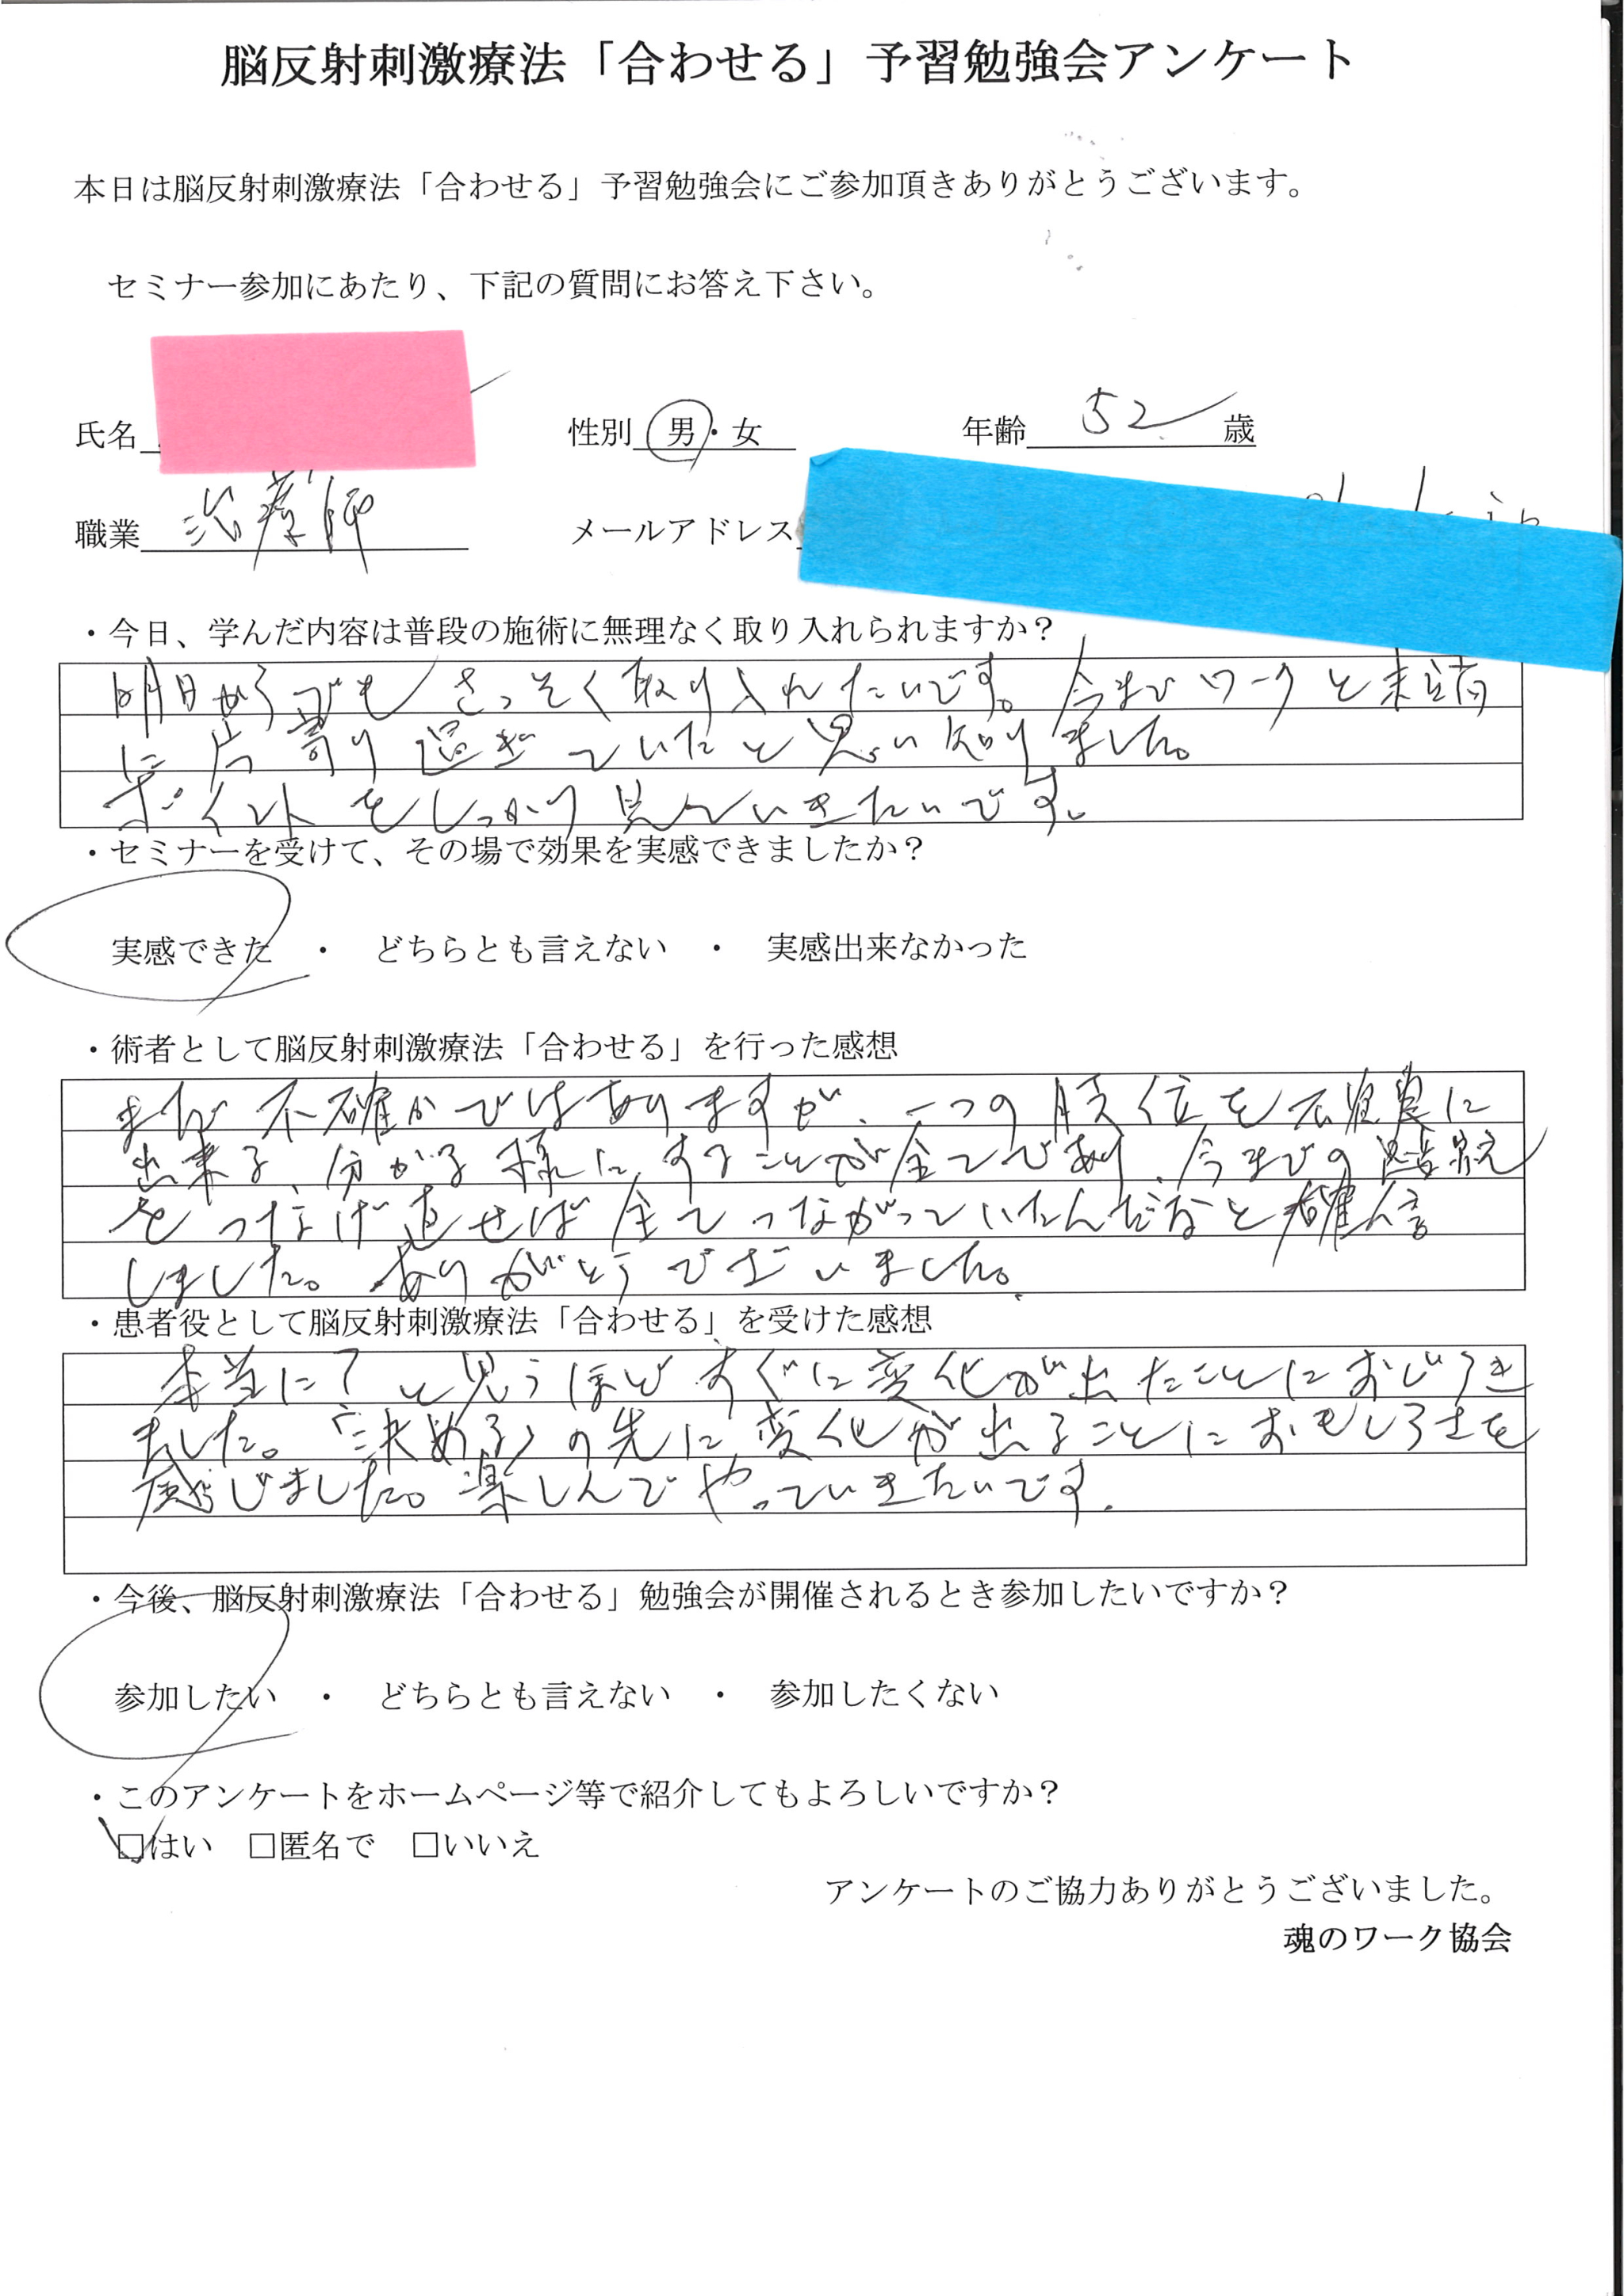 脳反射刺激療法「合わせる」予習勉強会アンケート
本日は脳反射刺激療法「合わせる」予習勉強会にご参加頂きありがとうございます。
セミナー参加にあたり、下記の質問にお答え下さい。
氏名 性別 男・女 年齢 52 歳
職業 治療師 メールアドレス
・今日、学んだ内容は普段の施術に無理なく取り入れられますか？
明日からでもさっそく取り入れたいです。今までワークと
に片寄り過ぎていたと思い知りました。
ポイントをしっかり見ていきたいです。
・セミナーを受けて、その場で効果を実感できましたか？
実感できた ・ どちらとも言えない ・ 実感出来なかった
・術者として脳反射刺激療法「合わせる」を行った感想
まだ不確かではありますが、一つの肢位を確実に
出来る、分かる様にすることが全てであり、今までの
をつなげ直せば全てつながっていたんだなと確信
しました。ありがとうございました。
・患者役として脳反射刺激療法「合わせる」を受けた感想
本当に？と思うほどすぐに変化が出たことにおどろき
ました。「決める」の先に変化が出ることにおもしろさを
感じました。楽しんでやっていきたいです。
・今後、脳反射刺激療法「合わせる」勉強会が開催されるとき参加したいですか？
参加したい ・ どちらとも言えない ・ 参加したくない
・このアンケートをホームページ等で紹介してもよろしいですか？
□はい □匿名で □いいえ
アンケートのご協力ありがとうございました。
魂のワーク協会